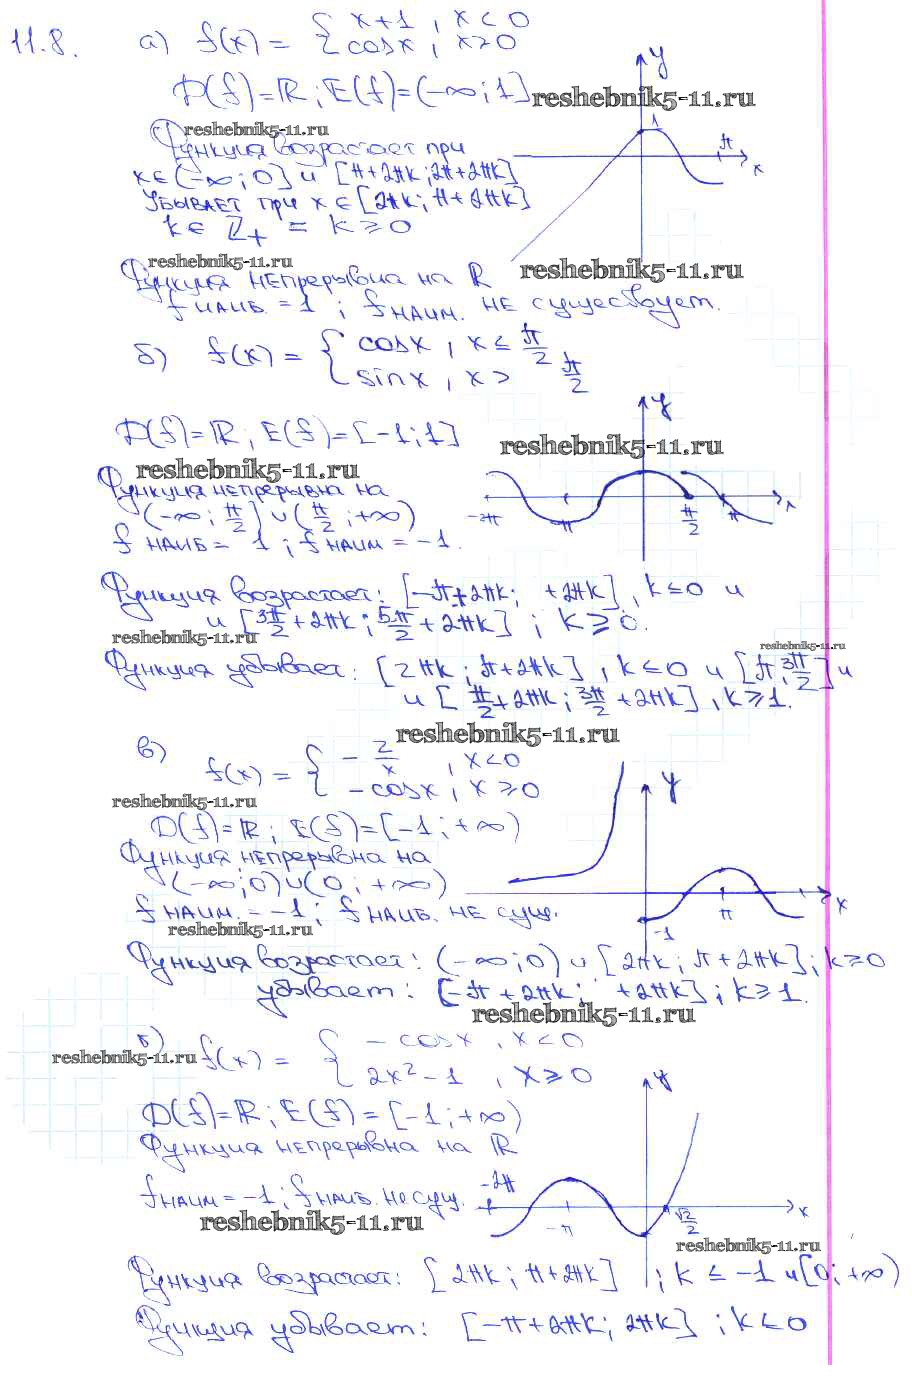 11.8. а) f(x) = { x+1 , x < 0
cosx , x ≥ 0
D(f)=ℝ ; E(f)=(-∞;1]
reshebnik5-11.ru
reshebnik5-11.ru
Функция возрастает при
x∈(-∞;0] и [π+2πk;2π+2πk]
Убывает при x∈[2πk; π+2πk]
k∈ ℤ+ = k≥0
reshebnik5-11.ru
reshebnik5-11.ru
Функция непрерывна на ℝ
fнаиб. = 1 ; fнаим. не существует.
y
1
π
x
б) f(x) = { cosx , x ≤ π/2
sinx , x > π/2
D(f)=ℝ ; E(f)=[-1;1]
reshebnik5-11.ru
reshebnik5-11.ru
Функция непрерывна на
(-∞; π/2] ∪ (π/2 ; +∞)
f наиб = 1 ; f наим = -1.
y
-2π
-π
π/2
π
x
Функция возрастает: [-π+2πk; +2πk], k≤0 и
и [3π/2 + 2πk ; 5π/2 + 2πk] ; k≥0.
reshebnik5-11.ru
reshebnik5-11.ru
Функция убывает: [2πk ; π+2πk] , k≤0 и [π; 3π/2] и
и [π/2 + 2πk; 3π/2 + 2πk] , k≥1.
reshebnik5-11.ru
в) f(x) = { -2/x , x<0
-cosx , x ≥ 0
reshebnik5-11.ru
D(f)=ℝ ; E(f)=[-1; +∞)
Функция непрерывна на
(-∞;0)∪(0; +∞)
fнаим. = -1 ; fнаиб. не сущ.
reshebnik5-11.ru
y
π
x
-1
Функция возрастает: (-∞;0) и [2πk; π+2πk]; k≥0
убывает: [-π+2πk; +2πk]; k≥1.
reshebnik5-11.ru
reshebnik5-11.ru
г) f(x) = { -cosx , x<0
2x²-1 , x ≥ 0
D(f)=ℝ ; E(f)=[-1; +∞)
Функция непрерывна на ℝ
fнаим = -1 ; fнаиб. не сущ.
reshebnik5-11.ru
y
-2π
-π
√2/2
x
reshebnik5-11.ru
Функция возрастает: [2πk ; π+2πk] ; k ≤ -1 и [0; +∞)
Функция убывает: [-π+2πk; 2πk] ; k≤0